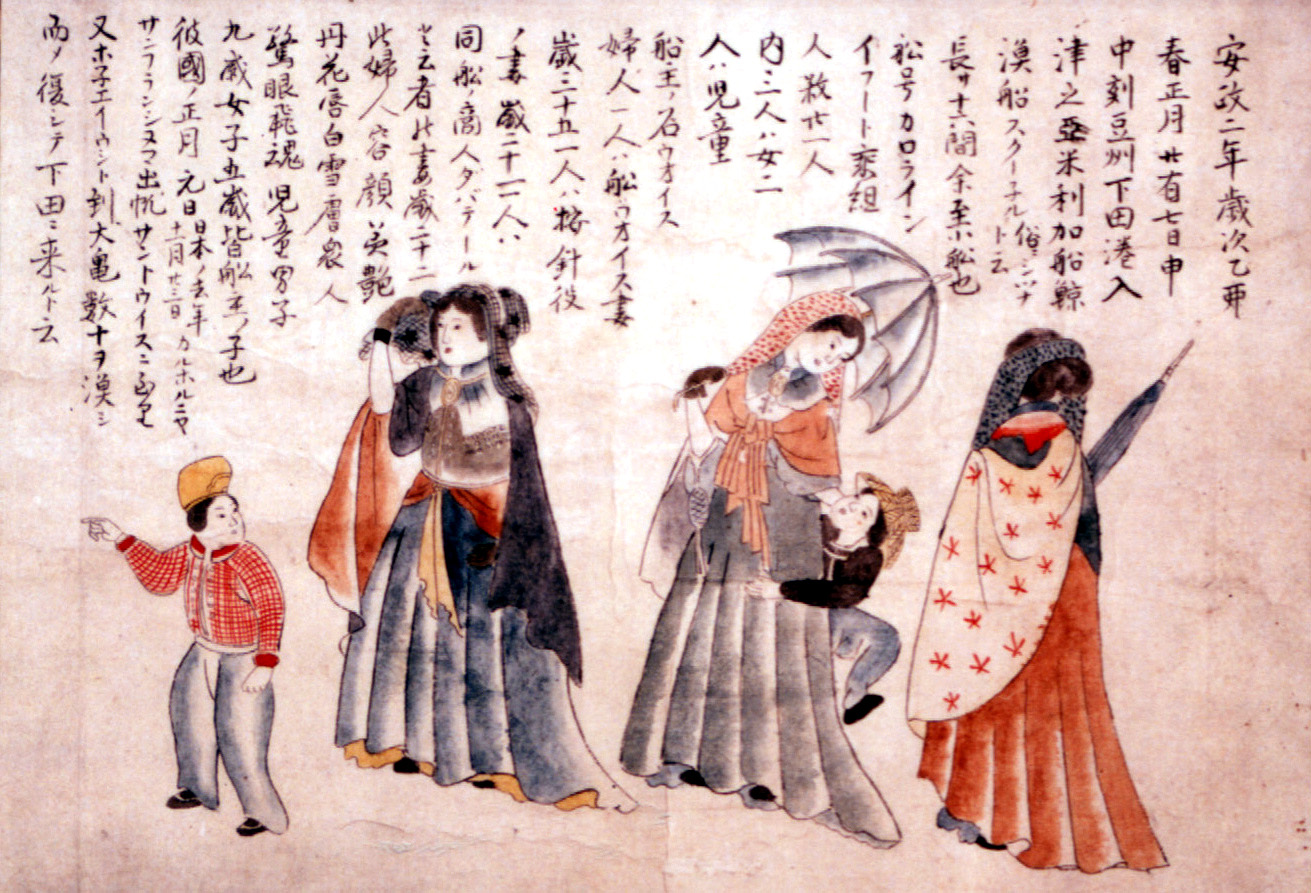 安政二年歳次乙卯
春正月廿有七日申
中刻豆州下田港入
津之亞米利加船鯨
漁船スクー子ル俗ニシツナト云
長サ十六間余柔㭷船也
船号カロライン
イフート乗組
人数廿一人
内三人ハ女二
人ハ児童
船主ノ名ウオイス
婦人一人ハ船ウオイス妻
歳三十五一人ハ按針役
ノ妻歳二十一一人ハ
同船ノ商人ダハテール
ト云者ノ妻歳二十二
此婦人容顔美艶
丹花唇白雪膚衆人
驚眼飛魂児童男子
九歳女子五歳皆船主ノ子也
彼國ノ正月元日日本ノ去年十一月廿三日カルホルニヤ
サンフランシスコ出帆サントウイスニ
又ホ子エイウント到大亀数十ヲ漁シ
而ノ復シテ下田ニ来ルト云